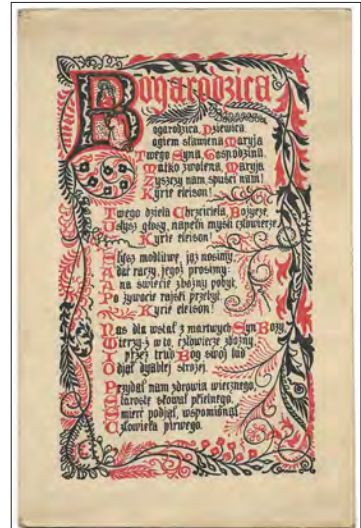 Bogarodzica
Bogarodzica, Dziewica,
Bogiem sławiena Maryja
Twego Syna, Gospodzina,
Matko zwolena, Maryja
Zyszczy nam, spuści nam!
Kyrie eleison!
Twego dziela Chrzciciela, Bożycze,
Usłysz głosy, napełń myśli człowiecze.
Kyrie eleison!
Słysz modlitwę, jąż nosimy,
dać raczy, jegoż prosimy:
na świecie zbożny pobyt,
Po żywocie rajski przebyt
Kyrie eleison!
Nas dla wstał z martwych Syn Boży,
Wierzy-ż w to, człowiecze zbożny
przez trud Bóg swój lud
Odjął dyablej strożej.
Przydał nam zdrowia wiecznego,
Starostę skował pkielnego,
śmierć podjął, wspomionął
Człowieka pirwego.